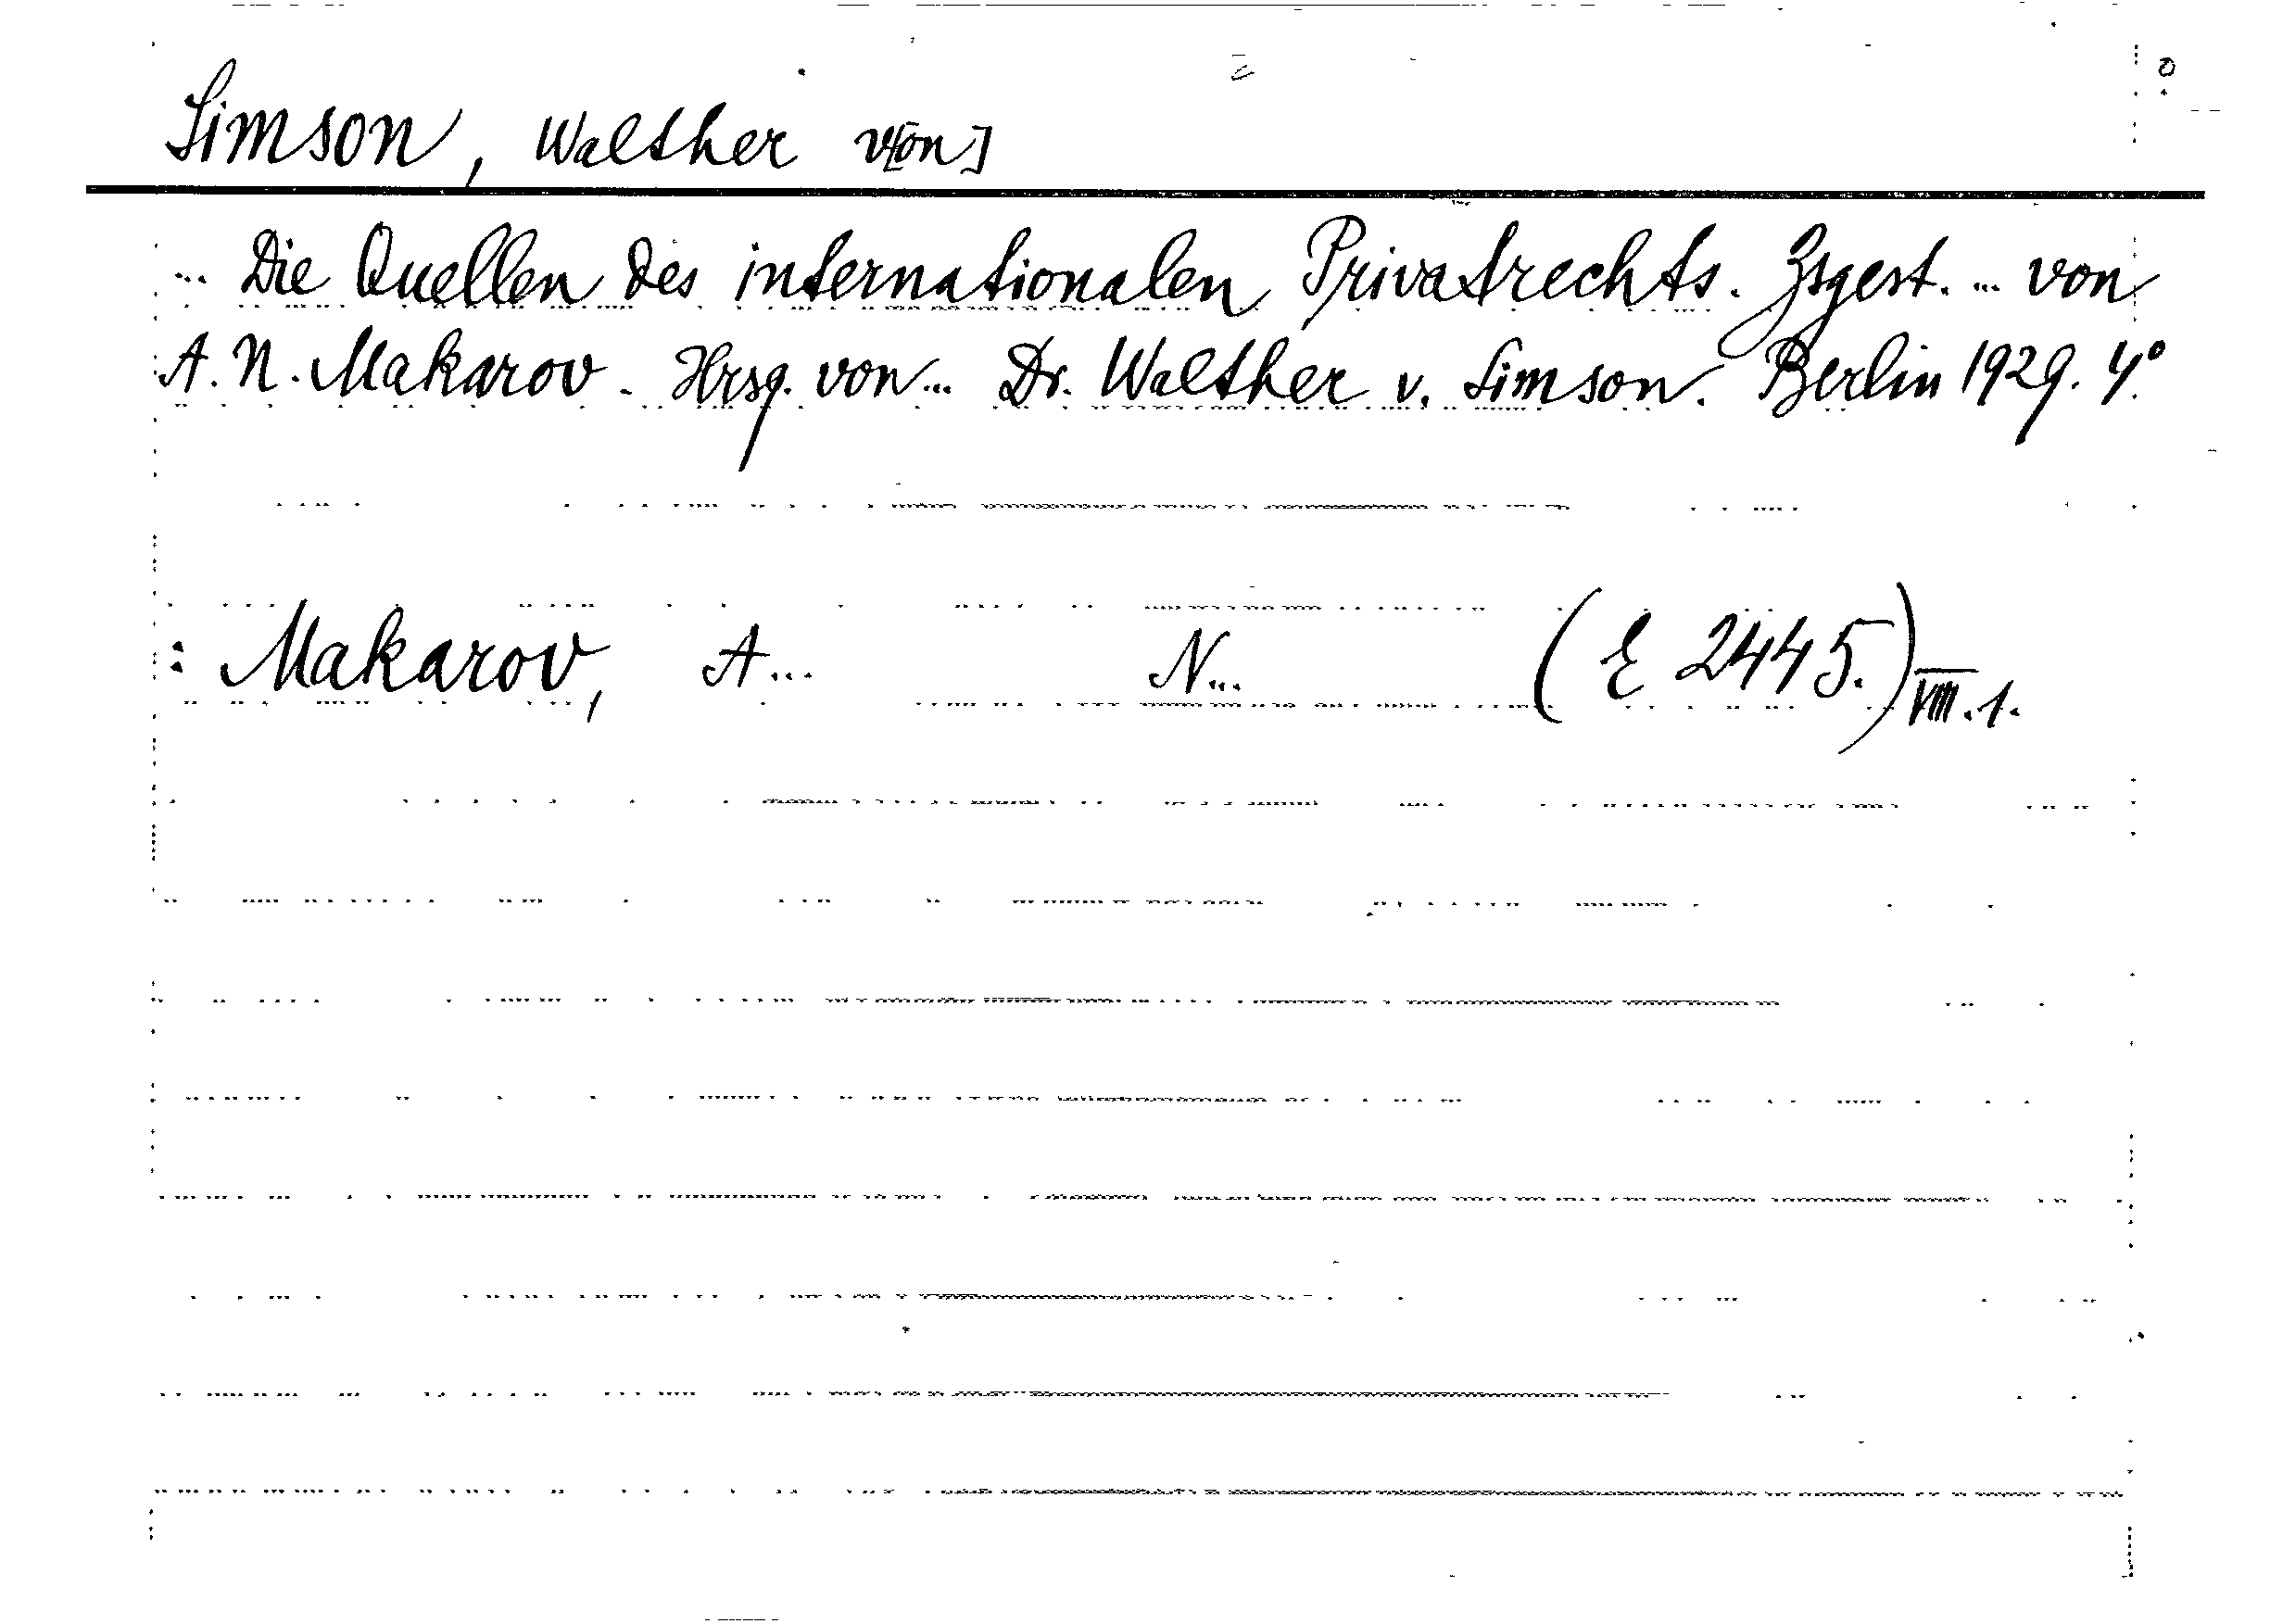 Simson, Walther v[on]
... Die Quellen des internationalen Privatrechts. Zsgest. ... von
A. N. Makarov. Hrsg. von ... Dr. Walther v. Simson. Berlin 1929. 4°.
: Makarov, A... N... (E 2445.) VIII.1.